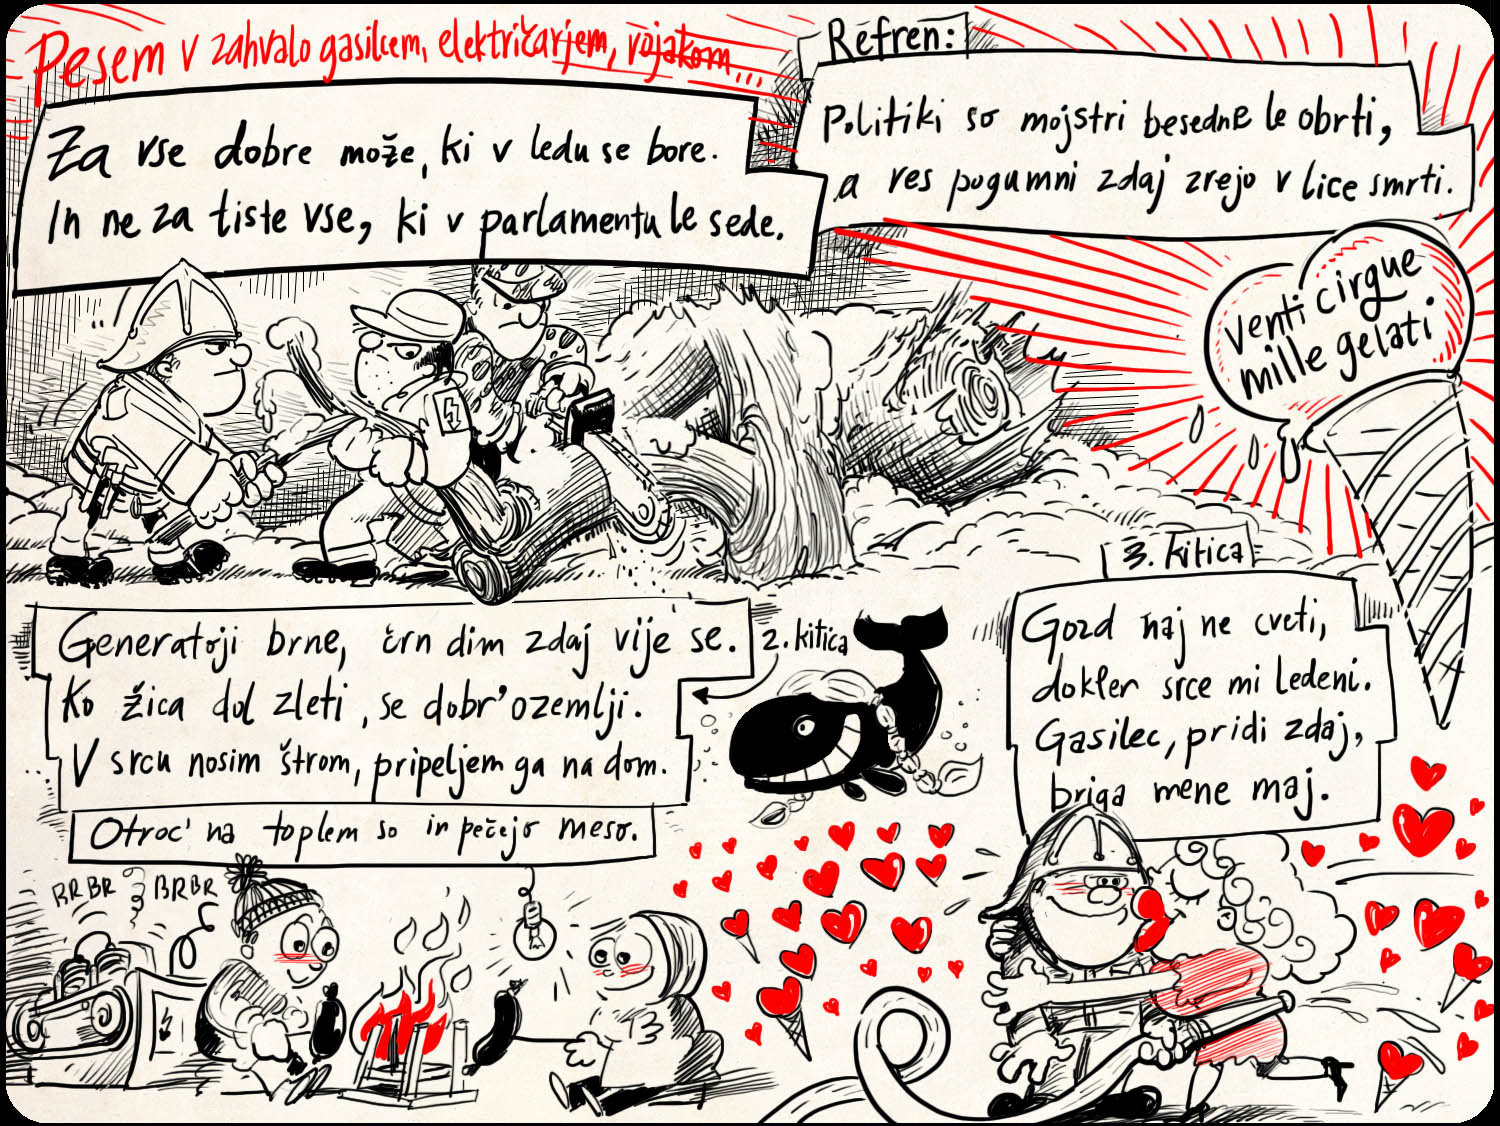 Pesem v zahvalo gasilcem, električarjem, vojakom...
Za vse dobre može, ki v ledu se bore.
In ne za tiste vse, ki v parlamentu le sede.
Refren:
Politiki so mojstri besedne le obrti,
a res pogumni zdaj zrejo v lice smrti.
venti cirque
mille gelati
2. kitica
Generatoji brne, črn dim zdaj vije se.
Ko žica dol zleti, se dobr' ozemlji.
V srcu nosim štrom, pripeljem ga na dom.
Otroc' na toplem so in pečejo meso.
3. kitica
Gozd naj ne cveti,
dokler srce mi ledeni.
Gasilec, pridi zdaj,
briga mene maj.
BRBR BRBR